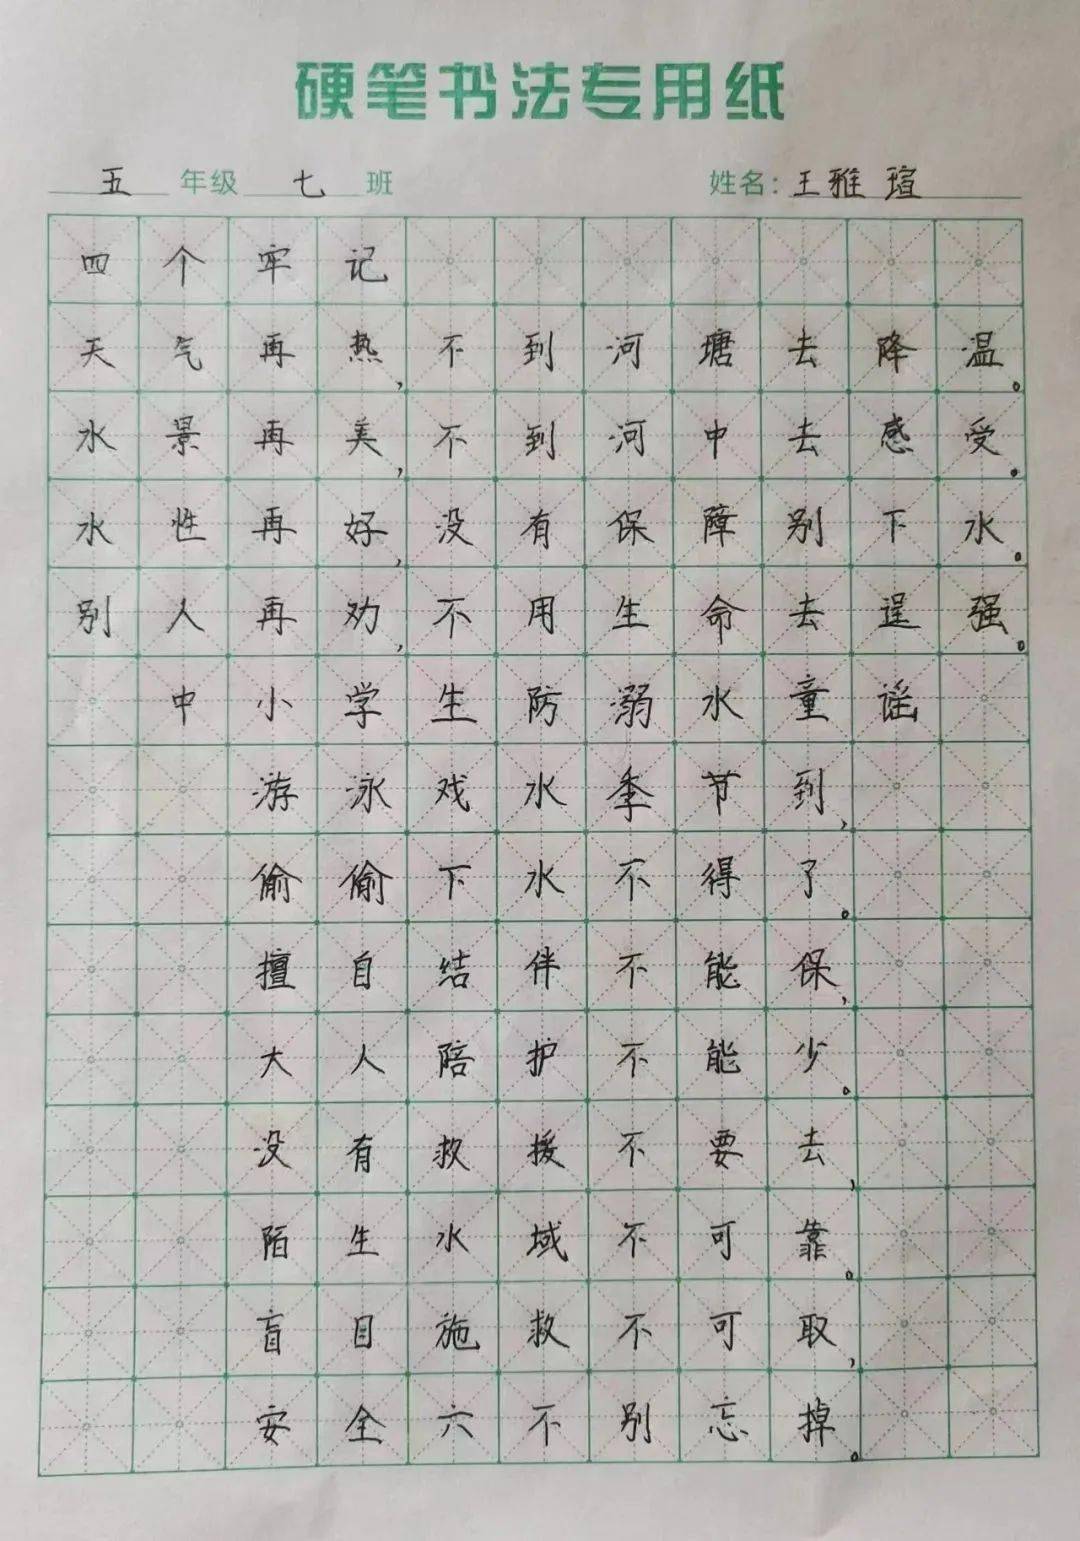 硬笔书法专用纸
五 年级 七 班 姓名：王雅瑄
四个牢记
天气再热,不到河塘去降温。
水景再美,不到河中去感受。
水性再好,没有保障别下水。
别人再劝,不用生命去逞强。
中小学生防溺水童谣
游泳戏水季节到,
偷偷下水不得了。
擅自结伴不能保,
大人陪护不能少。
没有救援不要去,
陌生水域不可靠。
盲目施救不可取,
安全六不别忘掉。